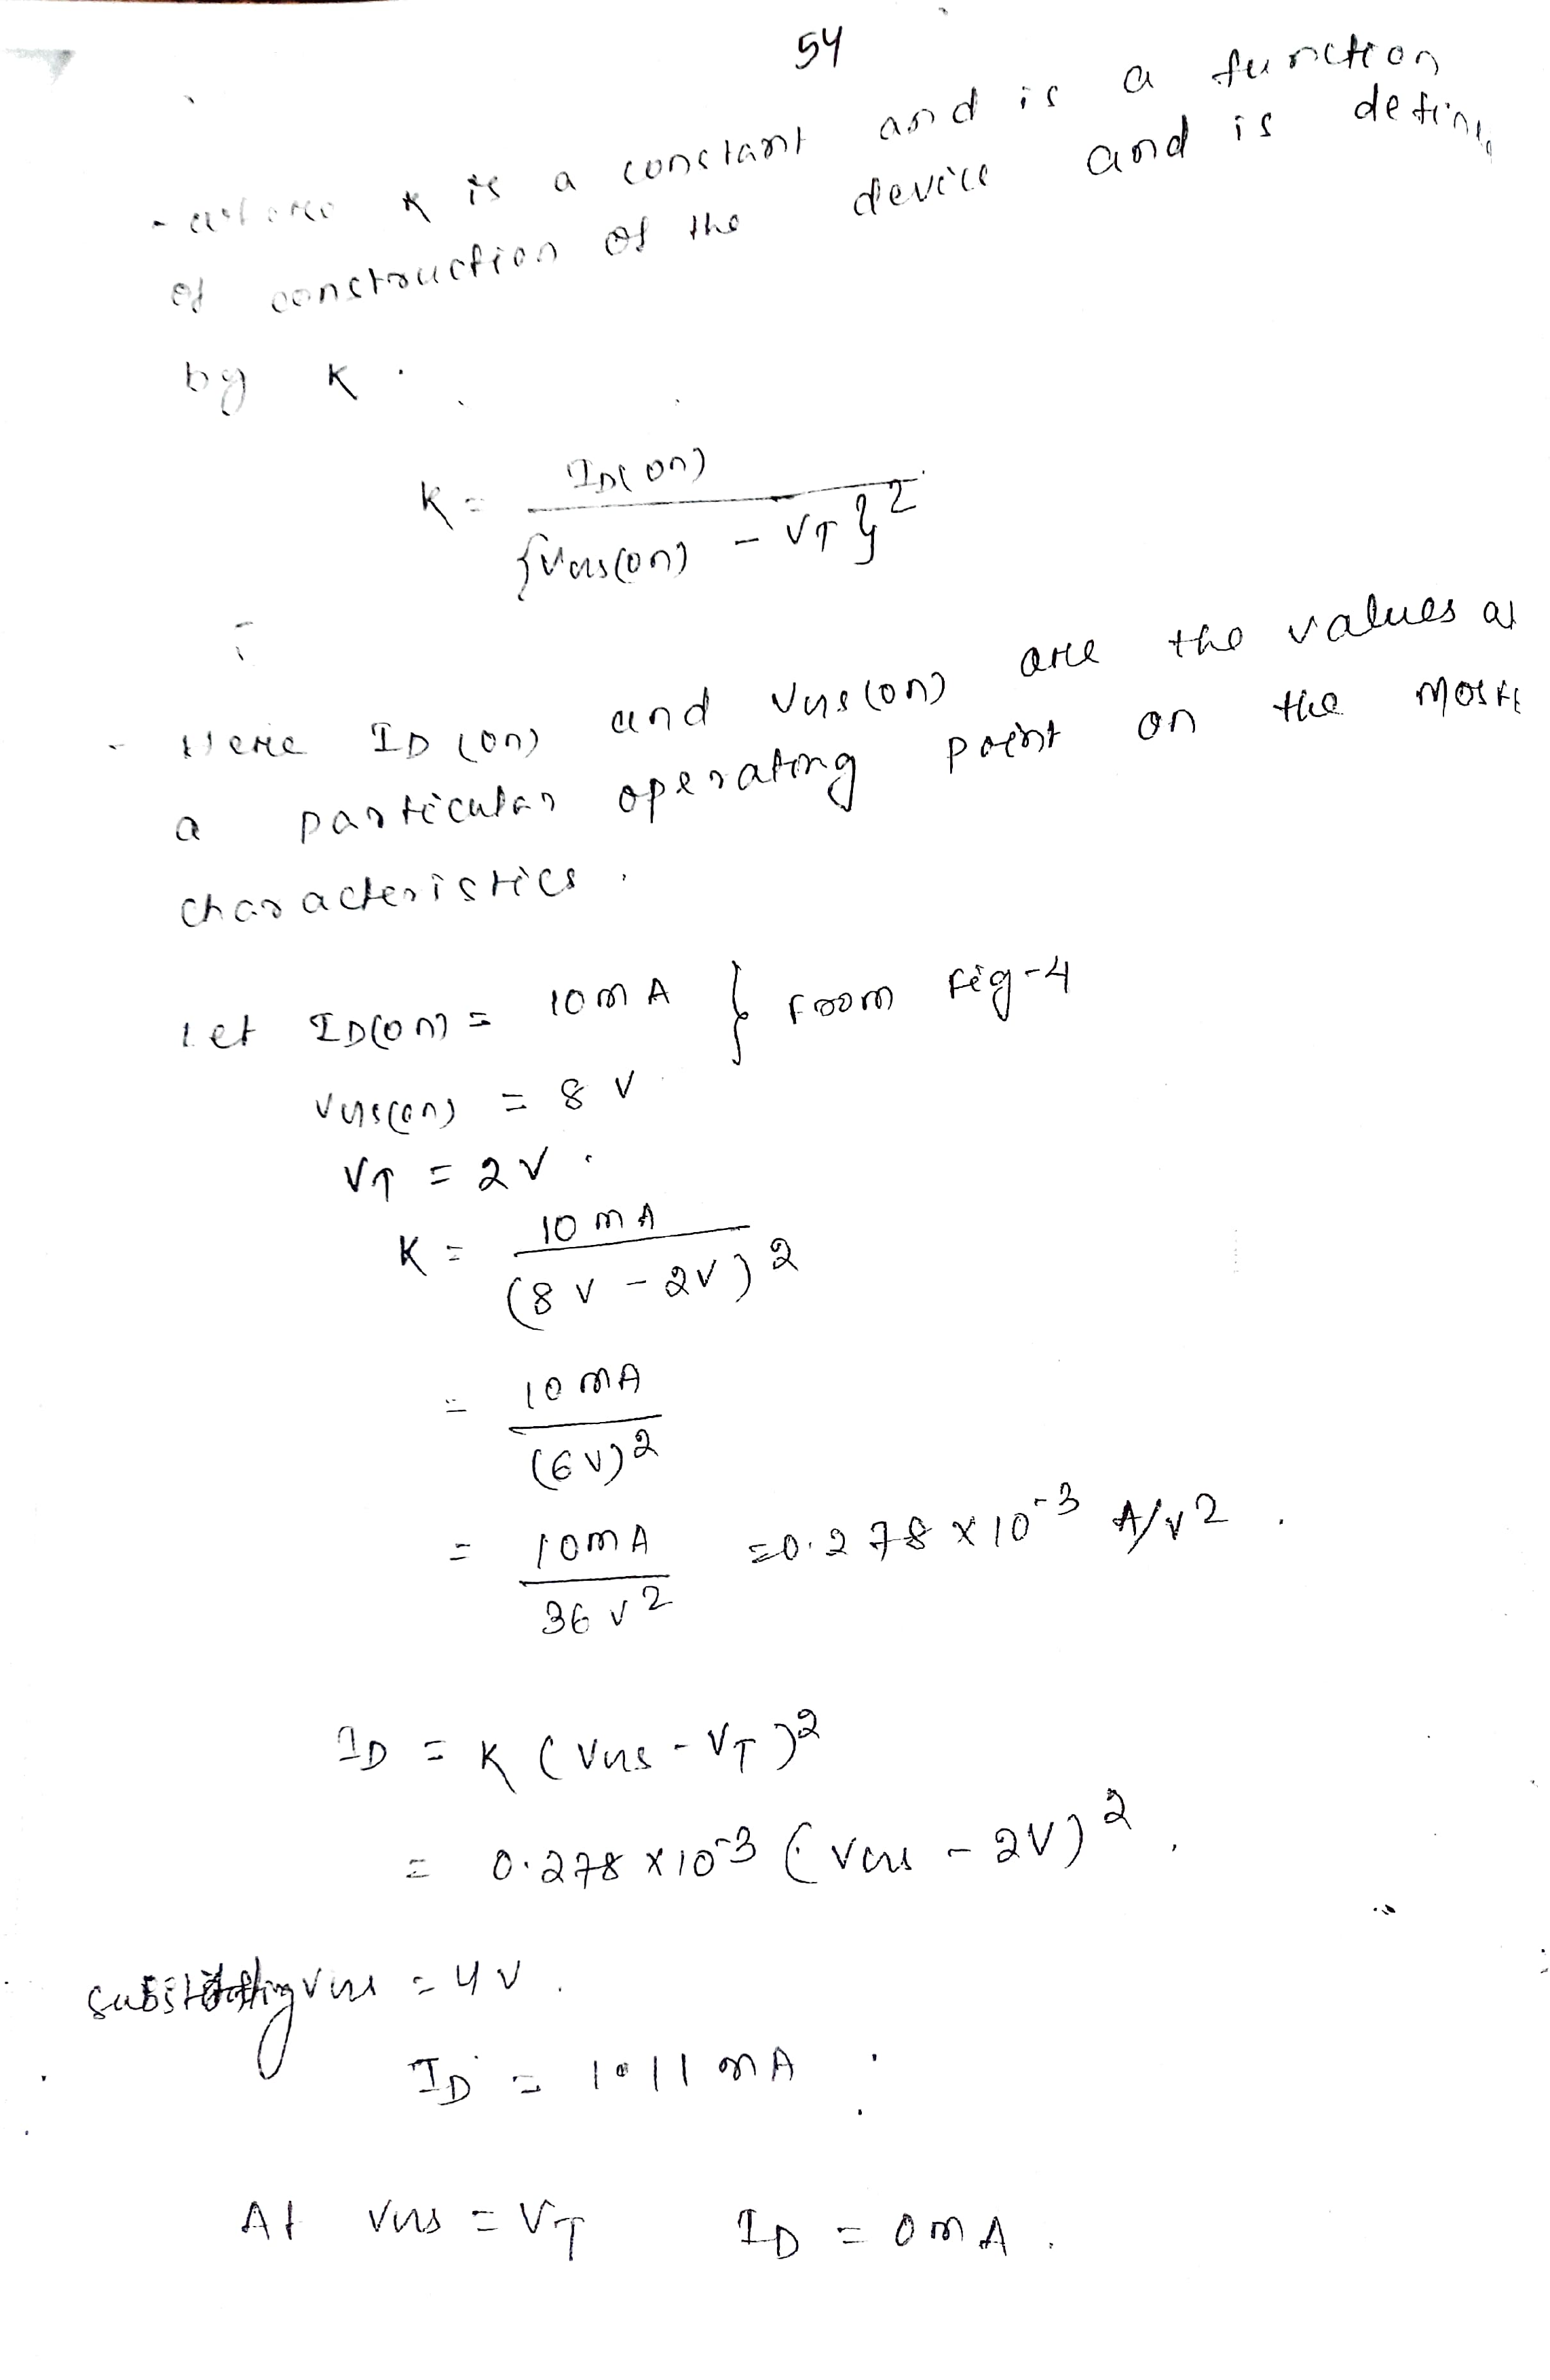 54
- where K is a constant and is a function
of construction of the device and is define
by K.
K = ID(on) / {VGS(on) - VT}2
- Here ID(on) and VGS(on) are the values at
a particular operating point on the MOSFE
characteristics.
Let ID(on) = 10mA } from fig-4
VGS(on) = 8 V
VT = 2V.
K = 10 mA / (8V - 2V)2
= 10mA / (6V)2
= 10mA / 36 V2 = 0.278 x 10-3 A/V2.
ID = K (VGS - VT)2
= 0.278 x 10-3 (VGS - 2V)2.
substituting VGS = 4V.
ID = 1.11 mA.
At VGS = VT ID = 0mA.